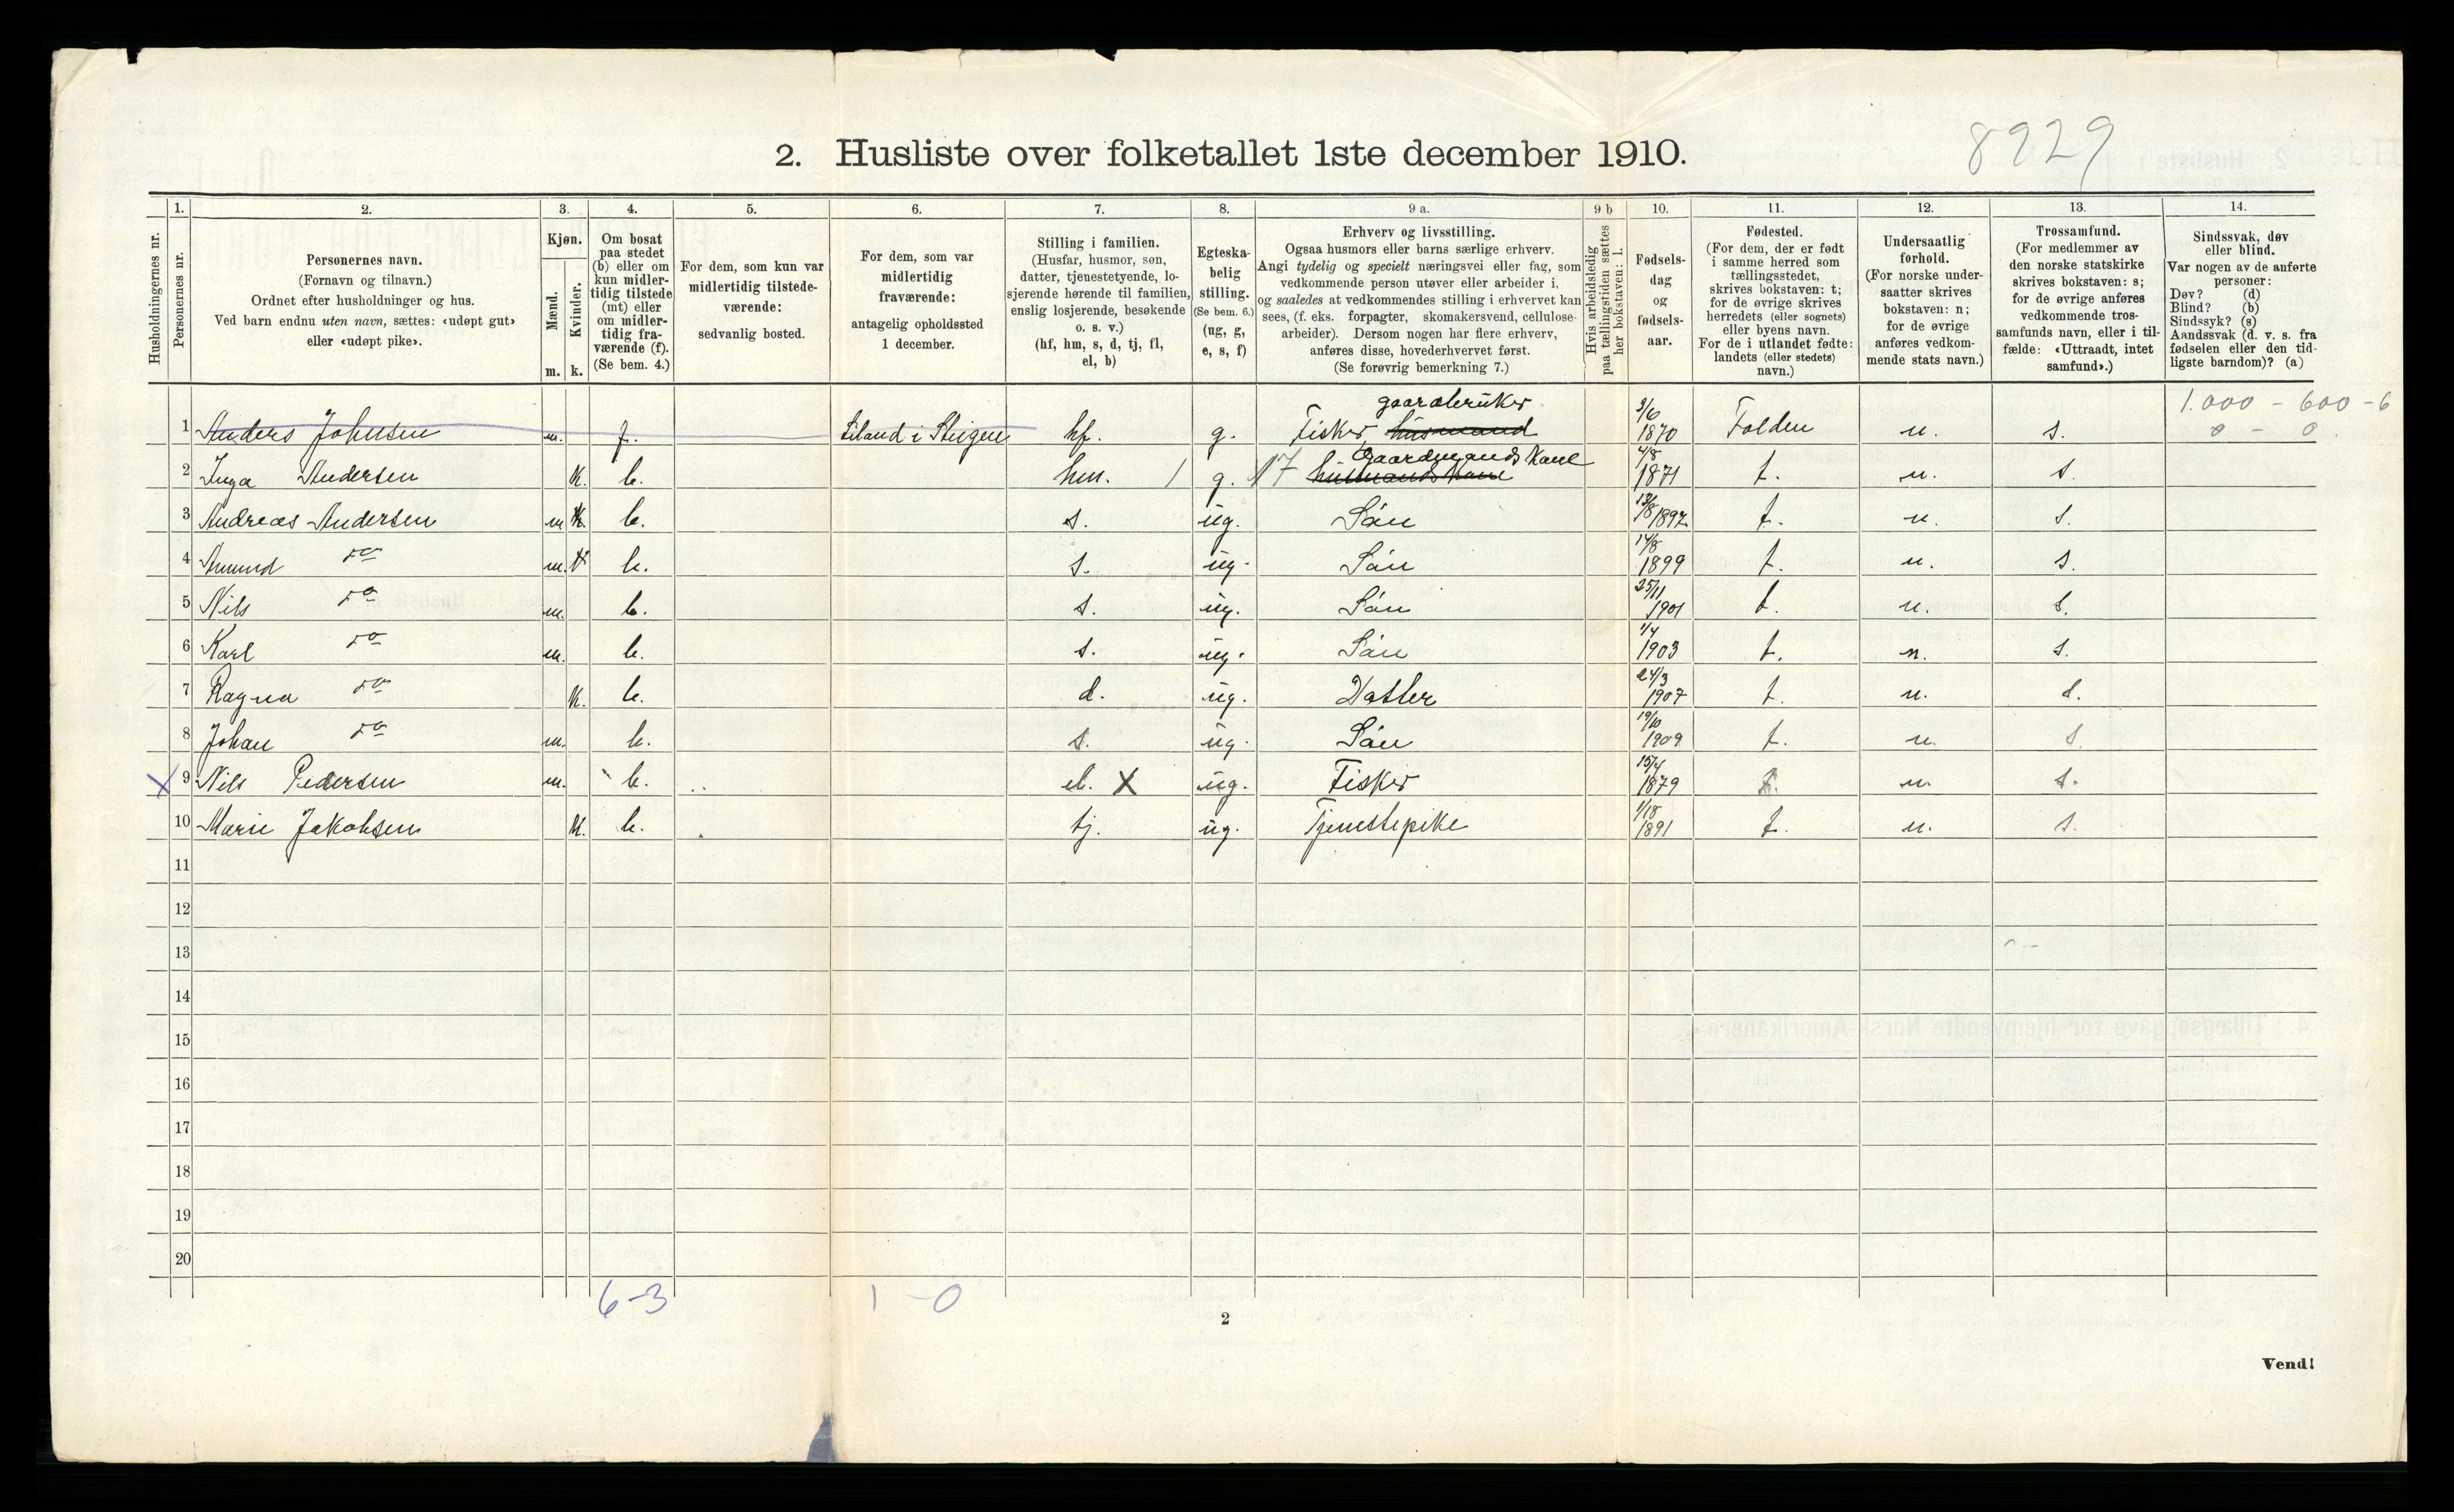 8929
2. Husliste over folketallet 1ste december 1910.
Husholdningernes nr.
1. Personernes nr.
2. Personernes navn.
(Fornavn og tilnavn.)
Ordnet efter husholdninger og hus.
Ved barn endnu uten navn, sættes: «udøpt gut»
eller «udøpt pike».
3. Kjøn.
Mænd. Kvinder.
m. k.
4. Om bosat
paa stedet
(b) eller om
kun midler-
tidig tilstede
(mt) eller
om midler-
tidig fra-
værende (f).
(Se bem. 4.)
5. For dem, som kun var
midlertidig tilstede-
værende:
sedvanlig bosted.
6. For dem, som var
midlertidig
fraværende:
antagelig opholdssted
1 december.
7. Stilling i familien.
(Husfar, husmor, søn,
datter, tjenestetyende, lo-
sjerende hørende til familien,
enslig losjerende, besøkende
o. s. v.)
(hf, hm, s, d, tj, fl,
el, b)
8. Egteska-
belig
stilling.
(Se bem. 6.)
(ug, g,
e, s, f)
9 a. Erhverv og livsstilling.
Ogsaa husmors eller barns særlige erhverv.
Angi tydelig og specielt næringsvei eller fag, som
vedkommende person utøver eller arbeider i,
og saaledes at vedkommendes stilling i erhvervet kan
sees, (f. eks. forpagter, skomakersvend, cellulose-
arbeider). Dersom nogen har flere erhverv,
anføres disse, hovederhvervet først.
(Se forøvrig bemerkning 7.)
9 b Hvis arbeidsledig
paa tællingstiden sættes
her bokstaven: l.
10. Fødsels-
dag
og
fødsels-
aar.
11. Fødested.
(For dem, der er født
i samme herred som
tællingsstedet,
skrives bokstaven: t;
for de øvrige skrives
herredets (eller sognets)
eller byens navn.
For de i utlandet fødte:
landets (eller stedets)
navn.)
12. Undersaatlig
forhold.
(For norske under-
saatter skrives
bokstaven: n;
for de øvrige
anføres vedkom-
mende stats navn.)
13. Trossamfund.
(For medlemmer av
den norske statskirke
skrives bokstaven: s;
for de øvrige anføres
vedkommende tros-
samfunds navn, eller i til-
fælde: «Uttraadt, intet
samfund».)
14. Sindssvak, døv
eller blind.
Var nogen av de anførte
personer:
Døv? (d)
Blind? (b)
Sindssyk? (s)
Aandssvak (d. v. s. fra
fødselen eller den tid-
ligste barndom)? (a)
gaardbruker 1.000 - 600 - 6
1 Anders Johnsen m. f. i Steigen hf. g. Fisker husmand 3/6 1870 Folden n. s. 0 - 0
Gaardmands Kone
2 Inga Andersen k. b. hm. 1 g. 17 husmands kone 4/8 1871 t. n. s.
3 Andreas Andersen m k b. s. ug. Søn 13/8 1897 t. n. s.
4 Amund do m. b. s. ug. Søn 14/8 1899 t. n. s.
5 Nils do m. b. s. ug. Søn 25/11 1901 t. n. s.
6 Karl do m. b. s. ug. Søn 1/4 1903 t. n. s.
7 Ragna do k. b. d. ug. Datter 24/3 1907 t. n. s.
8 Johan do m. b. s. ug. Søn 19/10 1909 t. n. s.
X 9 Nils Pedersen m. b. el. X ug. Fisker 15/4 1879 t. n. s.
10 Marie Jakobsen k. b. tj. ug. Tjenestepike 1/18 1891 t. n. s.
11
12
13
14
15
16
17
18
19
20
6-3 1-0
2
Vend!